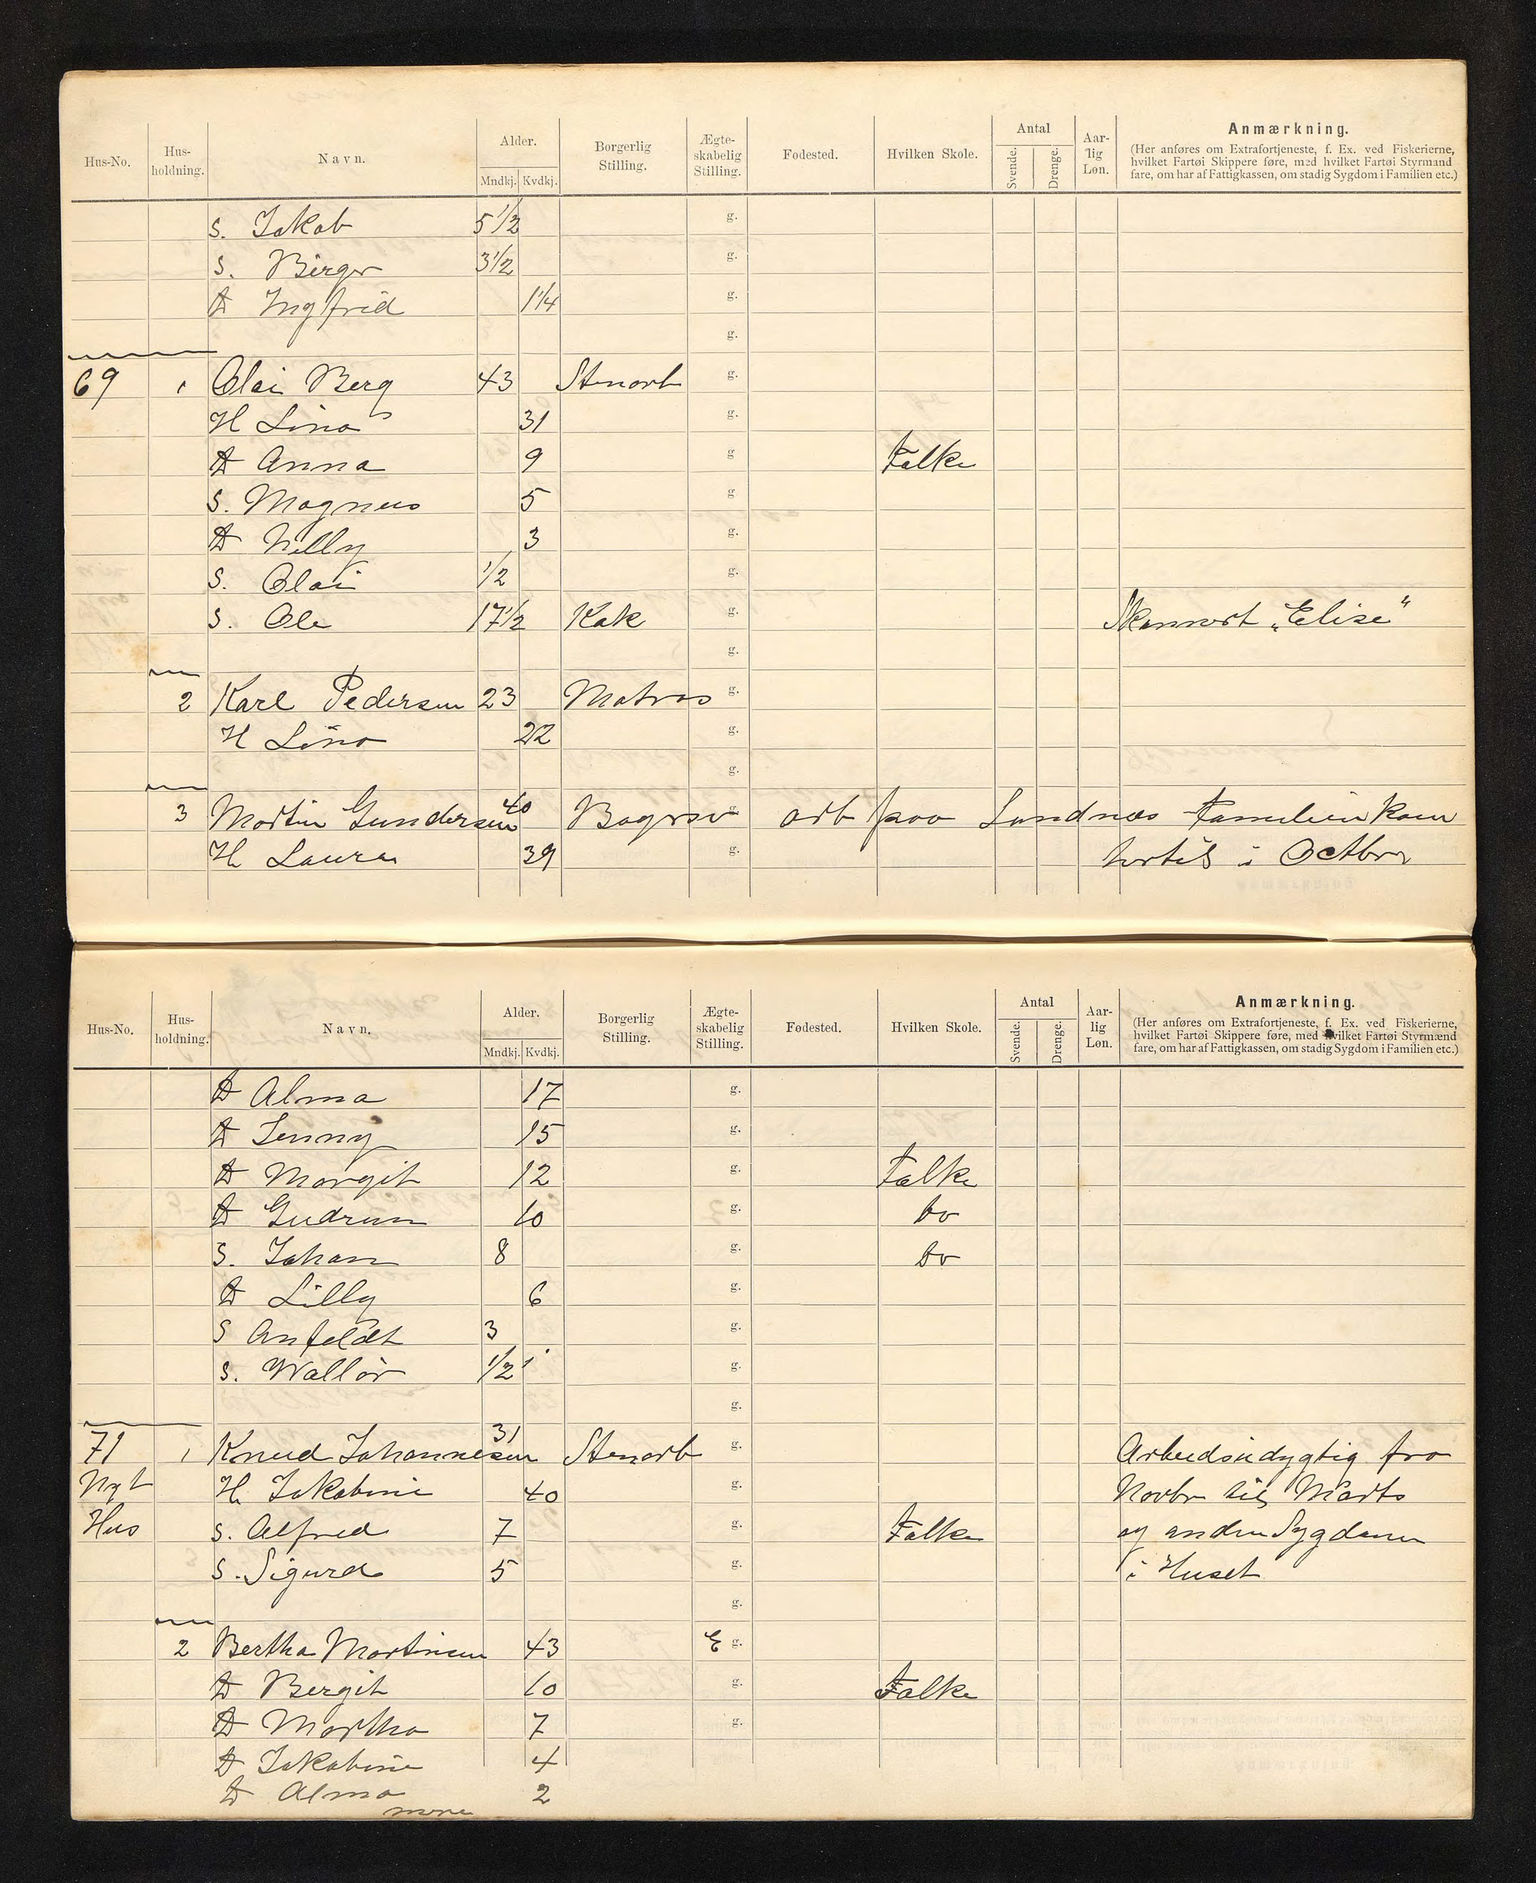 Hus-No. Hus-holdning. Navn. Alder. Mndkj. Kvdkj. Borgerlig Stilling. Ægte-skabelig Stilling. Fødested. Hvilken Skole. Antal Svende. Drenge. Aar-lig Løn. Anmærkning.
(Her anføres om Extrafortjeneste, f. Ex. ved Fiskerierne,
hvilket Fartøi Skippere føre, med hvilket Fartøi Styrmænd
fare, om har af Fattigkassen, om stadig Sygdom i Familien etc.)
S. Jakob 5 1/2 g.
S. Birger 3 1/2 g.
D Ingfrid 1 1/4 g.
g.
69 1 Olai Berg 43 Stenarb g.
H Lina 31 g.
D Anna 9 g Folke
S. Magnus 5 g
D Nelly 3 g.
S. Olai 1/2 g.
S. Ole 17 1/2 Kok g. Skonnert „Elise“
g.
2 Karl Pedersen 23 Matros g.
H Lina 22 g.
g.
3 Martin Gundersen 40 Bager g. arb paa Sandnæs Familien kom
H. Laura 39 g. hertil i Octbr
Hus-No. Hus-holdning. Navn. Alder. Mndkj. Kvdkj. Borgerlig Stilling. Ægte-skabelig Stilling. Fødested. Hvilken Skole. Antal Svende. Drenge. Aar-lig Løn. Anmærkning.
(Her anføres om Extrafortjeneste, f. Ex. ved Fiskerierne,
hvilket Fartøi Skippere føre, med hvilket Fartøi Styrmænd
fare, om har af Fattigkassen, om stadig Sygdom i Familien etc.)
D Alma 17 g.
D Jenny 15 g.
D Margit 12 g. Folke
D Gudrun 10 g. do
S. Johan 8 g. do
D Lilly 6 g.
S Anfeldt 3 g.
S. Wallor 1/2 g.
g.
71 1 Knud Johannesen 31 Stenarb g. Arbeidsudygtig fra
Nyt H. Jakobine 40 g. Novbr til Marts
Hus S. Alfred 7 g. Folke og anden Sygdom
S. Sigurd 5 g. i Huset
g.
2 Bertha Martinsen 43 E g.
D Bergit 10 g. Folke
D Martha 7 g.
D Jakobine 4
D Alma 2
mere